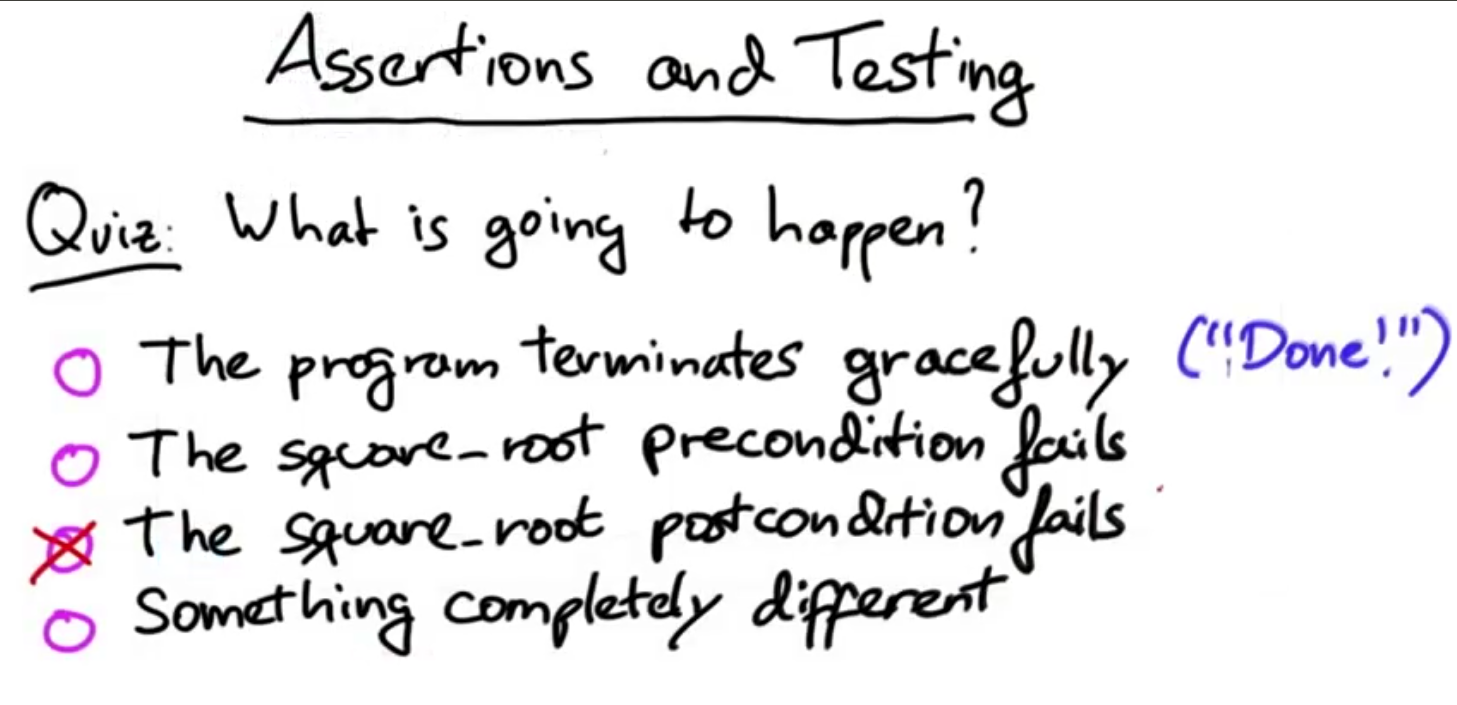 Assertions and Testing
Quiz: What is going to happen?
The program terminates gracefully ("Done!")
The square-root precondition fails
The square-root postcondition fails
Something completely different